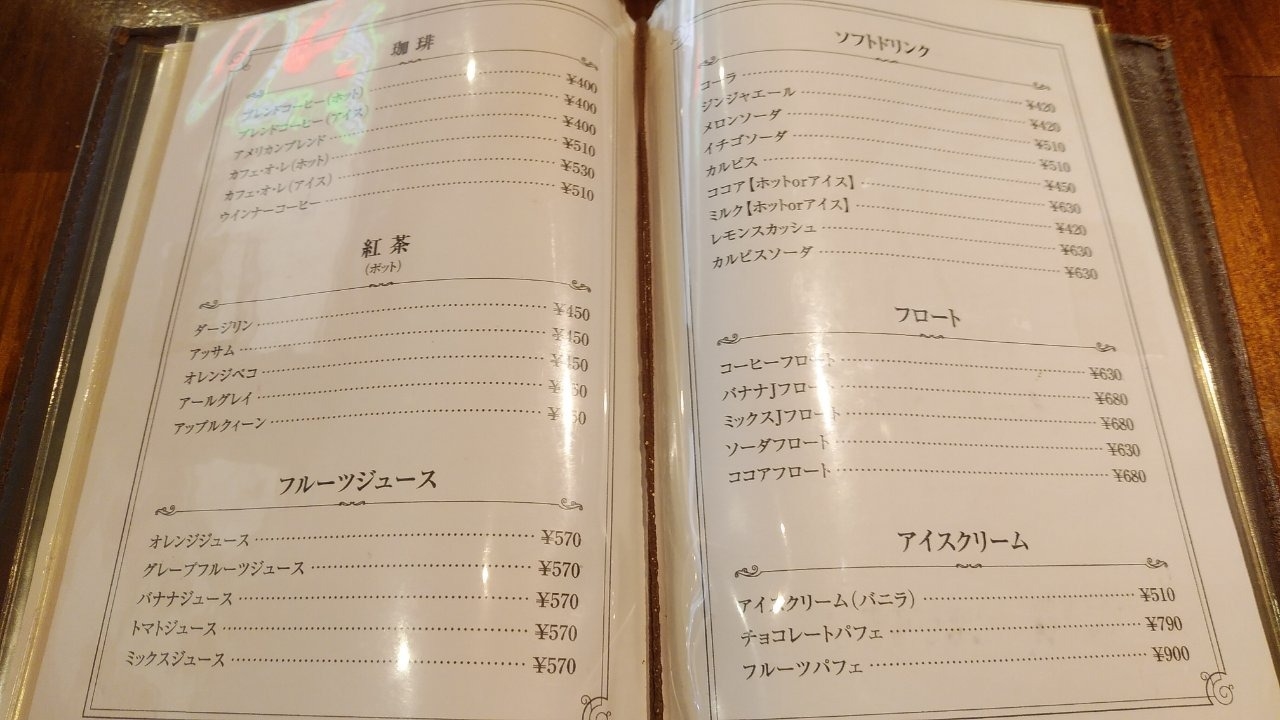 珈琲
ブレンドコーヒー(ホット) ¥400
ブレンドコーヒー(アイス) ¥400
アメリカンブレンド ¥400
カフェ・オ・レ(ホット) ¥510
カフェ・オ・レ(アイス) ¥530
ウインナーコーヒー ¥510
紅茶
(ポット)
ダージリン ¥450
アッサム ¥450
オレンジペコ ¥450
アールグレイ
アップルクィーン
フルーツジュース
オレンジジュース ¥570
グレープフルーツジュース ¥570
バナナジュース ¥570
トマトジュース ¥570
ミックスジュース ¥570
ソフトドリンク
コーラ ¥420
ジンジャエール ¥420
メロンソーダ ¥510
イチゴソーダ ¥510
カルピス ¥450
ココア【ホットorアイス】 ¥630
ミルク【ホットorアイス】 ¥420
レモンスカッシュ ¥630
カルピスソーダ ¥630
フロート
コーヒーフロート ¥630
バナナJフロート ¥680
ミックスJフロート ¥680
ソーダフロート ¥630
ココアフロート ¥680
アイスクリーム
アイスクリーム(バニラ) ¥510
チョコレートパフェ ¥790
フルーツパフェ ¥900